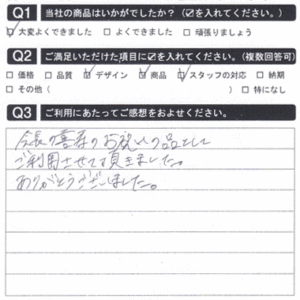 Q1 当社の商品はいかがでしたか？（☑を入れてください。）
☑大変よくできました □よくできました □頑張りましょう
Q2 ご満足いただけた項目に☑を入れてください。（複数回答可）
□価格 □品質 ☑デザイン ☑商品 ☑スタッフの対応 □納期
□その他（ ） □特になし
Q3 ご利用にあたってご感想をおよせください。
会長の喜寿のお祝いの品として
ご利用させて頂きました。
ありがとうございました。